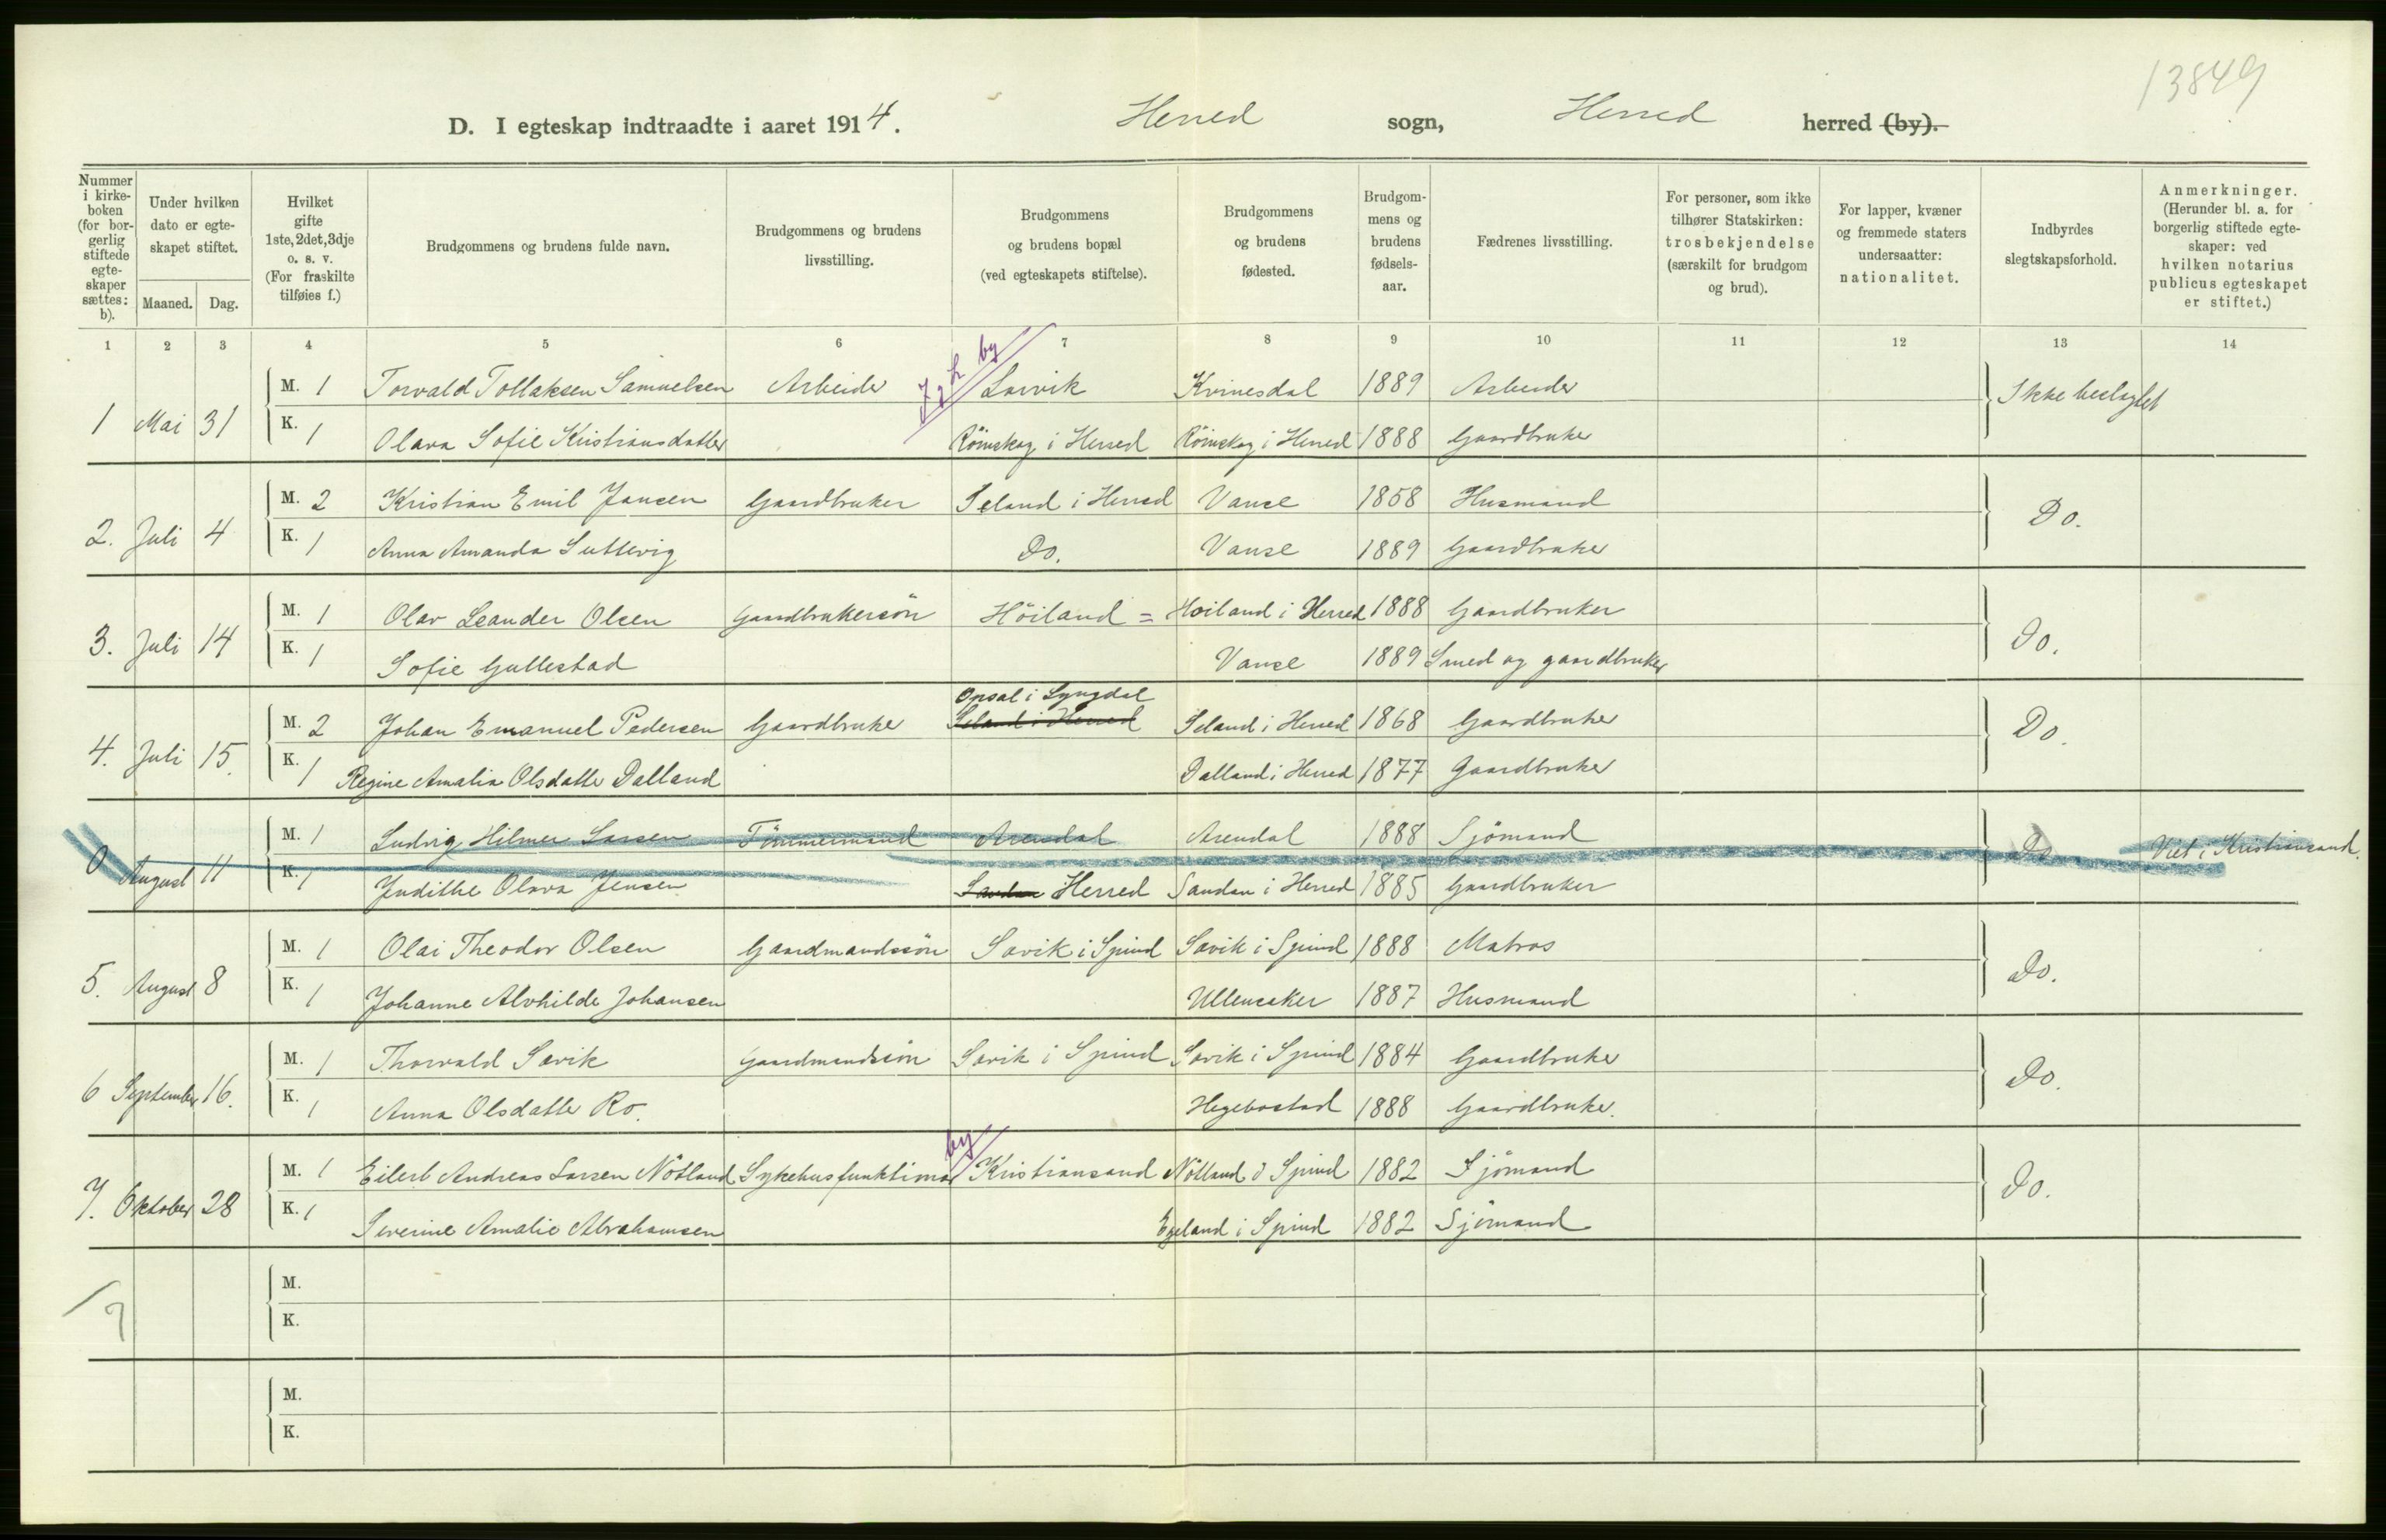 13849
D. I egteskap indtraadte i aaret 1914. Herred sogn, Herred herred (by).
Nummer i kirkeboken (for borgerlig stiftede egteskaper sættes: b).
Under hvilken dato er egteskapet stiftet.
Maaned. Dag.
Hvilket gifte 1ste, 2det, 3dje o. s. v. (For fraskilte tilføies f.)
Brudgommens og brudens fulde navn.
Brudgommens og brudens livsstilling.
Brudgommens og brudens bopæl (ved egteskapets stiftelse).
Brudgommens og brudens fødested.
Brudgommens og brudens fødselsaar.
Fædrenes livsstilling.
For personer, som ikke tilhører Statskirken: trosbekjendelse (særskilt for brudgom og brud).
For lapper, kvæner og fremmede staters undersaatter: nationalitet.
Indbyrdes slegtskapsforhold.
Anmerkninger. (Herunder bl. a. for borgerlig stiftede egteskaper: ved hvilken notarius publicus egteskapet er stiftet.)
1 2 3 4 5 6 7 8 9 10 11 12 13 14
by
M. 1 Torvald Tollaksen Samuelsen Arbeider Larvik Kvinesdal 1889 Arbeider
1 Mai 31 Ikke beslegtet
K. 1 Olava Sofie Kristiansdatter Röinskog i Herred Röinskog i Herred 1888 Gaardbruker
M. 2 Kristian Emil Jansen Gaardbruker Seland i Herred Vanse 1858 Husmand
2. Juli 4 Do.
K. 1 Anna Amanda Luttevig Do. Vanse 1889 Gaardbruker
M. 1 Olav Leander Olsen Gaardbrukersön Höiland = Höiland i Herred 1888 Gaardbruker
3. Juli 14 Do.
K. 1 Sofie Gullestad Vanse 1889 Smed og gaardbruker
Opsal i Lyngdal
M. 2 Johan Emanuel Pedersen Gaardbruker Seland i Herred Seland i Herred 1868 Gaardbruker
4. Juli 15. Do.
K. 1 Regine Amalia Olsdatter Dalland Dalland i Herred 1877 Gaardbruker
M. 1 Ludvig Hilmer Larsen Tömmermand Arendal Arendal 1888 Sjömand
0 August 11 Do Viet i Kristiansand.
K. 1 Yndithe Olava Jensen Sandan Herred Sandan i Herred 1885 Gaardbruker
M. 1 Olai Theodor Olsen Gaardmandssön Savik i Spind Savik i Spind 1888 Matros
5. August 8 Do.
K. 1 Johanne Alvhilde Johansen Ullensaker 1887 Husmand
M. 1 Thorvald Savik Gaardmandssön Savik i Spind Savik i Spind 1884 Gaardbruker
6 September 16. Do.
K. 1 Anna Olsdatter Ro. Hegebostad 1888 Gaardbruker.
by
M. 1 Eilert Andreas Larsen Nötland Sykehusfunktionær Kristiansand Nötland i Spind 1882 Sjömand
7. Oktober 28 Do.
K. 1 Severine Amalie Abrahamsen Egeland i Spind 1882 Sjömand
M.
7
K.
M.
K.